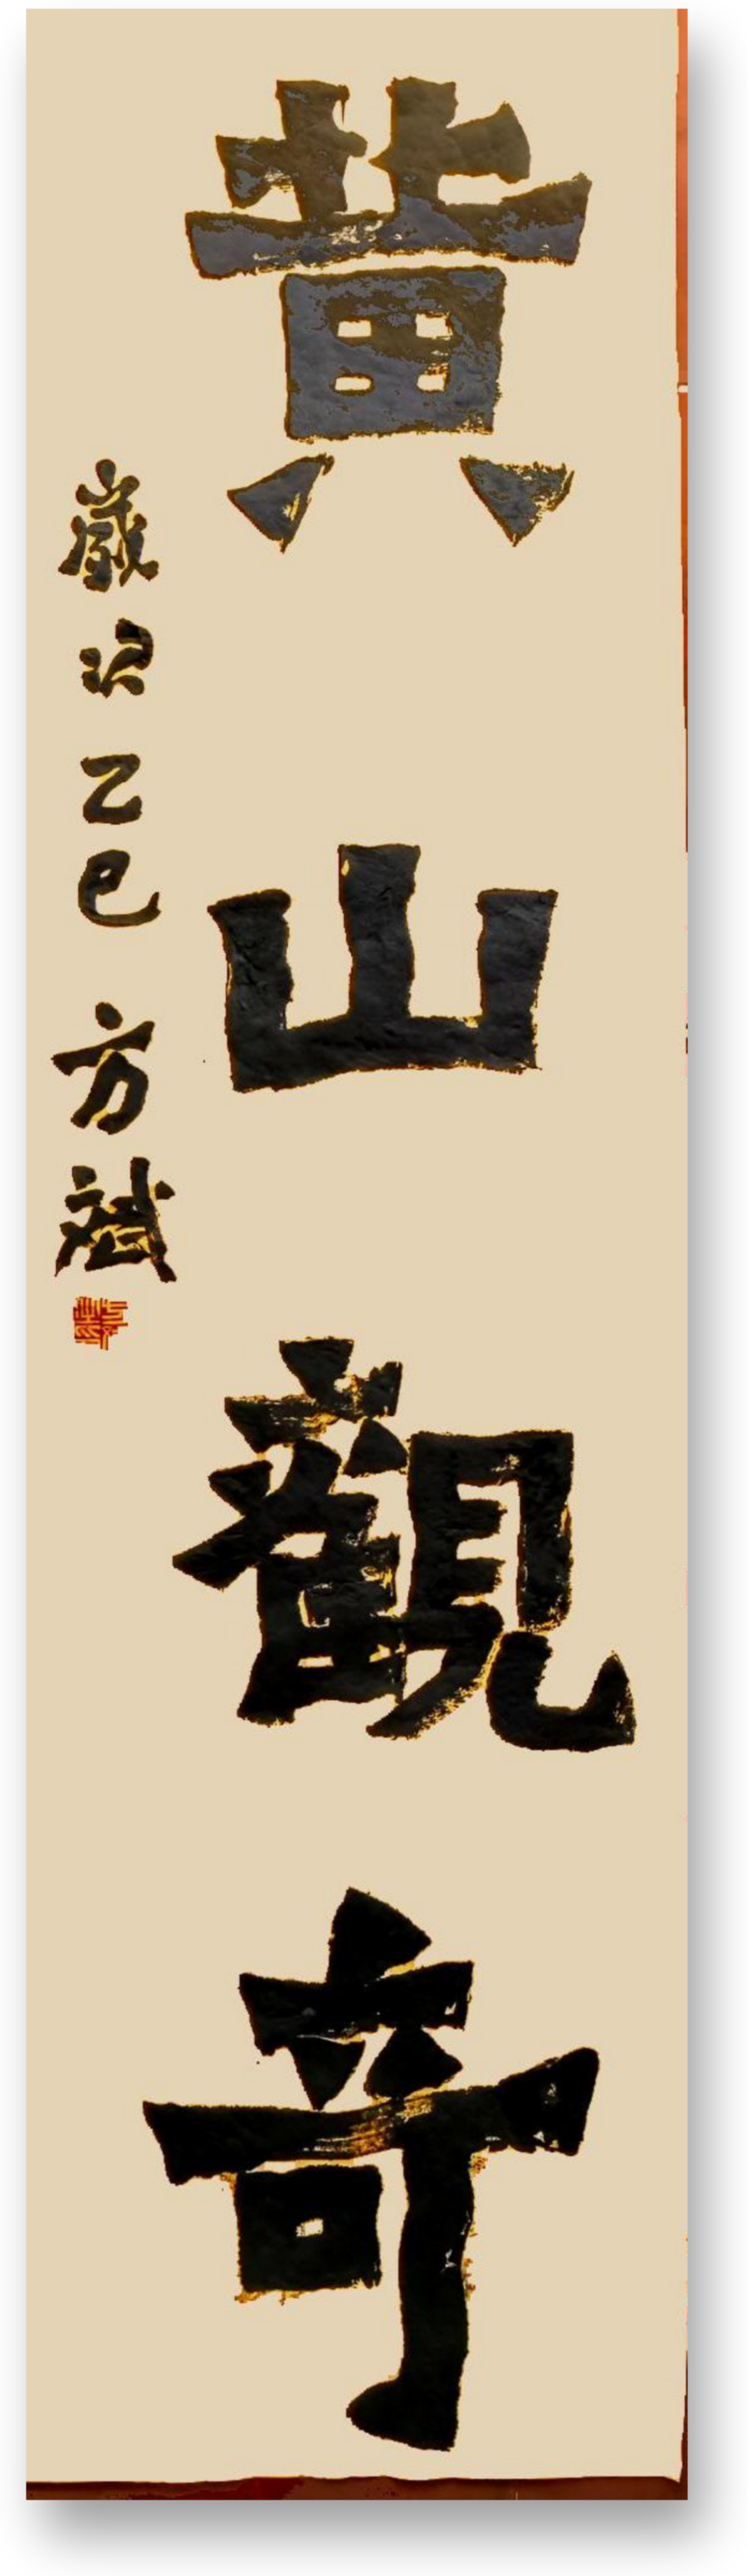 黃山觀奇
歲次乙巳 方斌